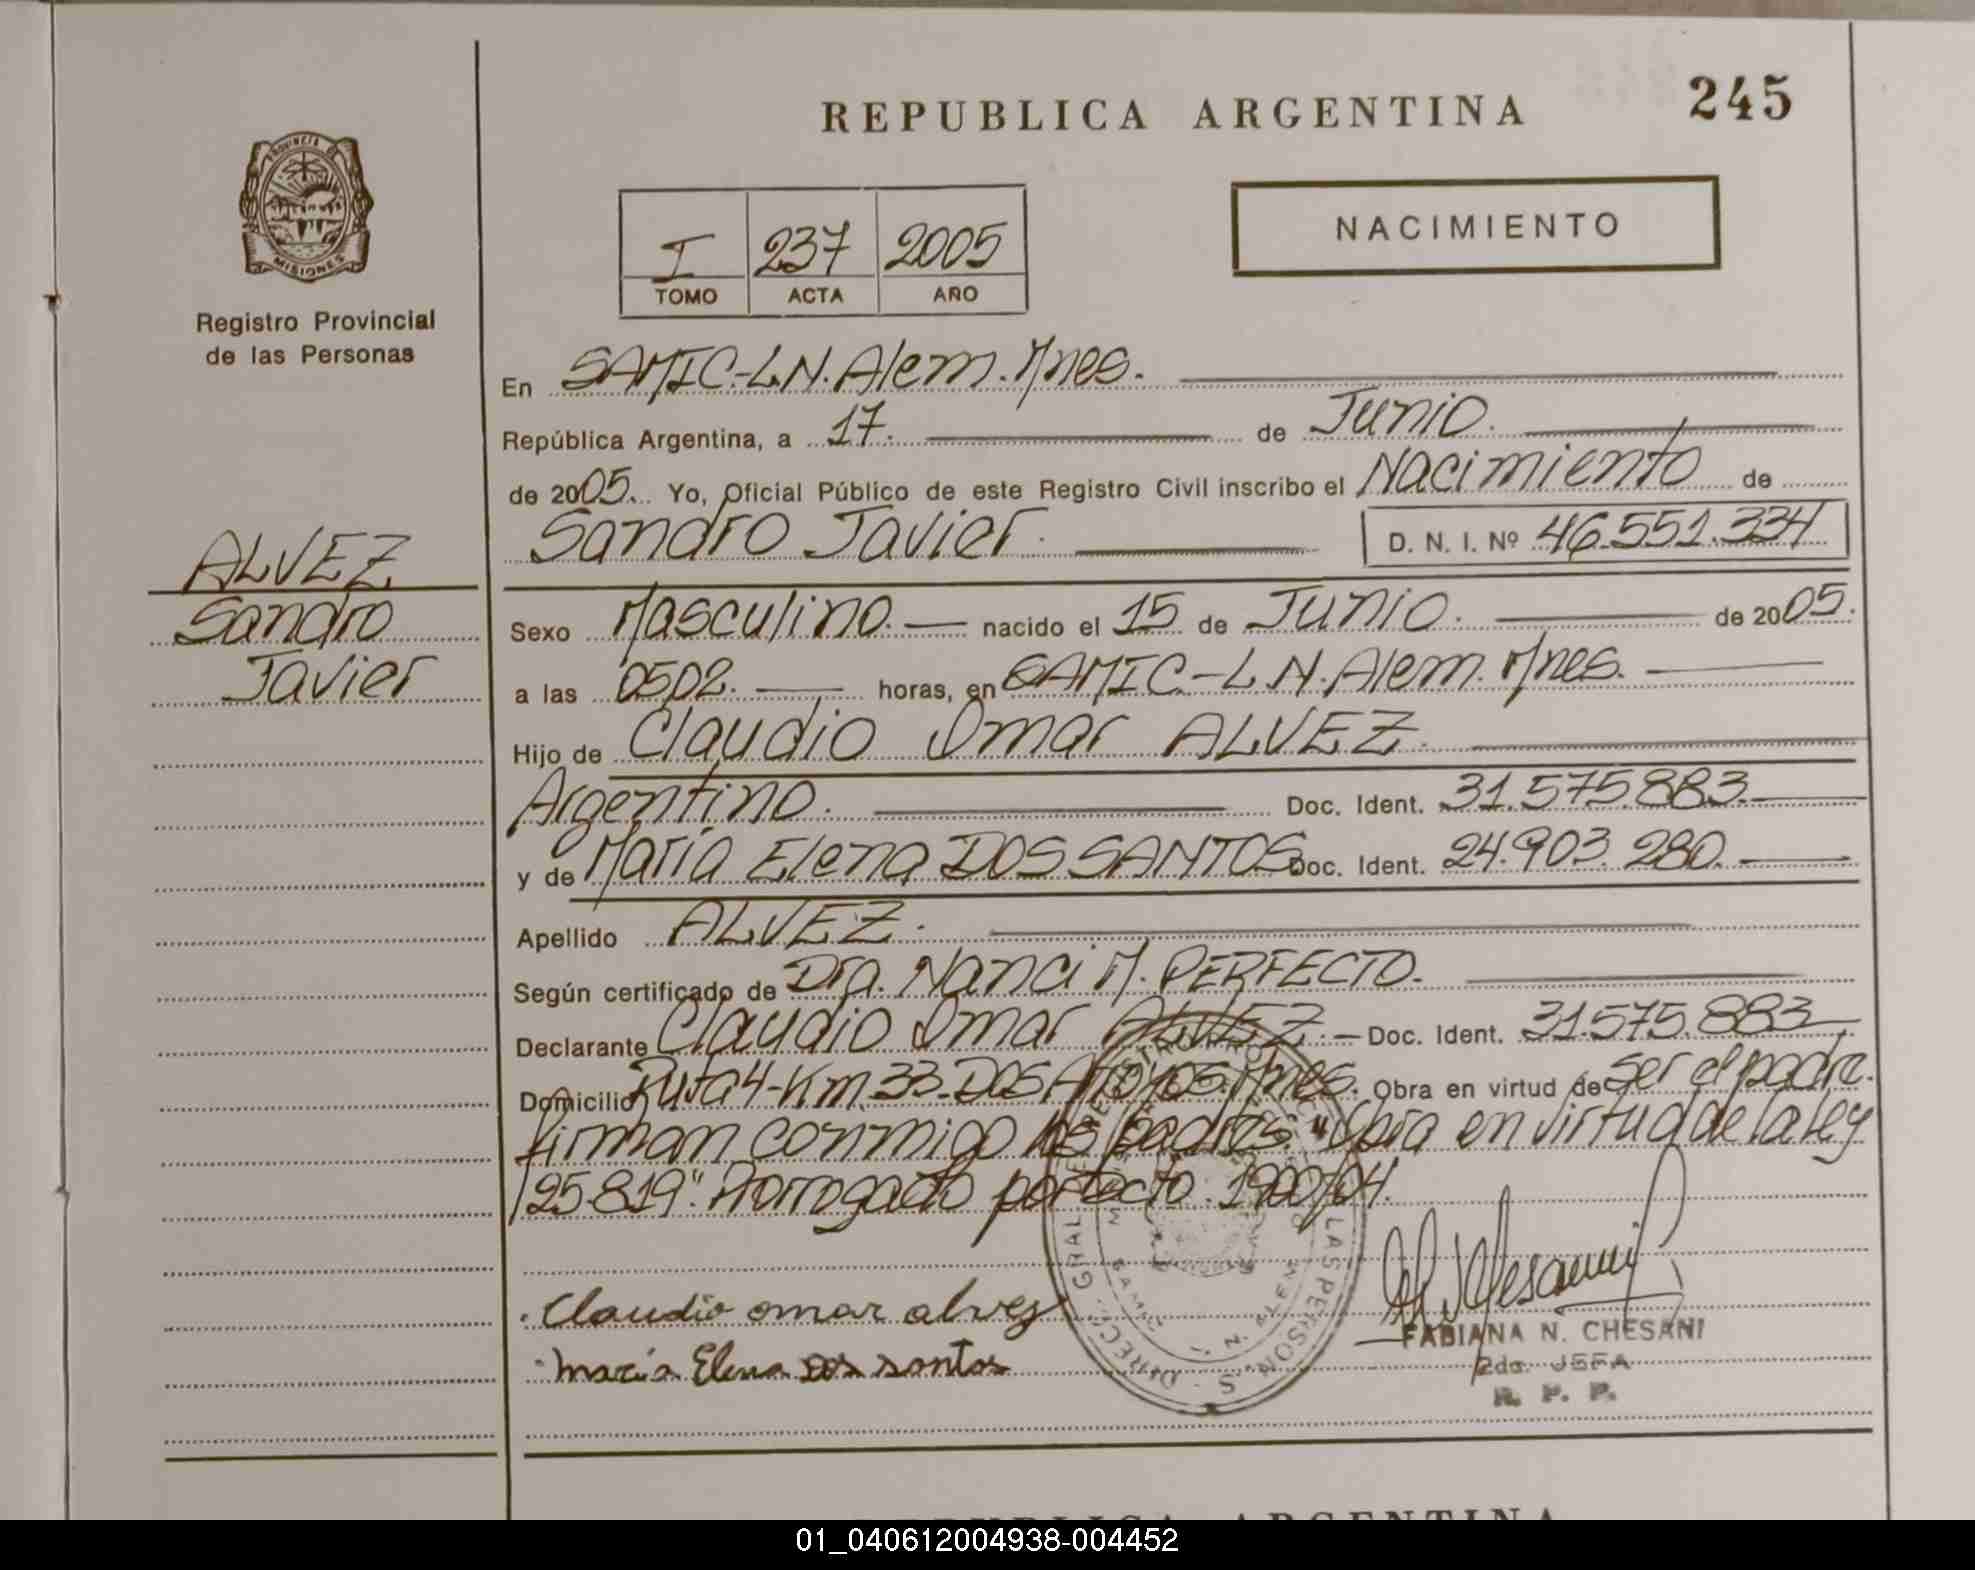 REPUBLICA ARGENTINA
245
PROVINCIA DE
MISIONES
Registro Provincial
de las Personas
I 237 2005
TOMO ACTA AÑO
NACIMIENTO
En SAMIC.-L.N.Alem.Mnes.
República Argentina, a 17. de Junio.
de 2005. Yo, Oficial Público de este Registro Civil inscribo el Nacimiento de
Sandro Javier. D. N. I. Nº 46.551.334
ALVEZ
Sandro
Javier
Sexo Masculino. nacido el 15 de Junio. de 2005.
a las 0502. horas, en SAMIC.-L.N.Alem. Mnes.
Hijo de Claudio Omar ALVEZ.
Argentino. Doc. Ident. 31.575.883.
y de María Elena DOS SANTOS Doc. Ident. 24.903.280.
Apellido ALVEZ.
Según certificado de Dra. Nanci M. PERFECTO.
Declarante Claudio Omar ALVEZ. Doc. Ident. 31.575.883
Domicilio Ruta 4-Km.33-Dos Arroyos.Mnes. Obra en virtud de ser el padre.
Firman conmigo los padres. "Obra en virtud de la ley
25.819". Prorrogado por Dcto. 1900/04.
Claudio omar alvez
Maria Elena Dos santos
FABIANA N. CHESANI
2da. JEFA
R. P. P.
REPUBLICA ARGENTINA
01_040612004938-004452